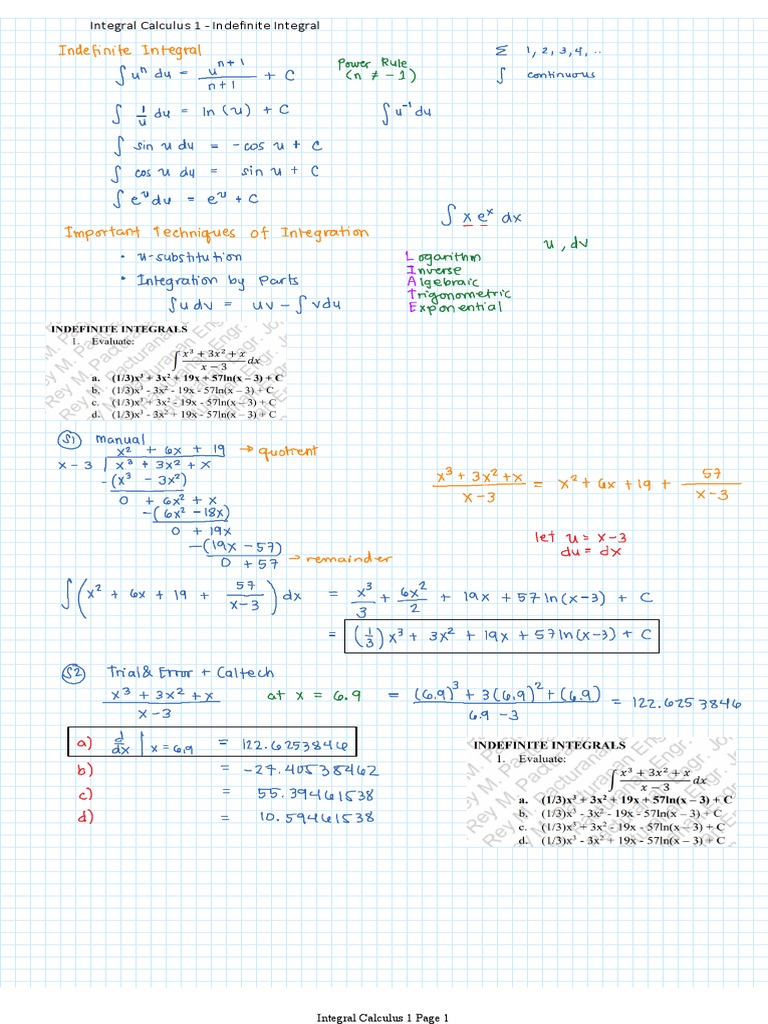 Integral Calculus 1 - Indefinite Integral
Indefinite Integral
∫ uⁿ du = uⁿ⁺¹/(n+1) + C
Power Rule
(n ≠ -1)
Σ 1, 2, 3, 4, ..
∫ continuous
∫ 1/u du = ln (u) + C
∫ u⁻¹ du
∫ sin u du = -cos u + C
∫ cos u du = sin u + C
∫ eᵘ du = eᵘ + C
∫ x eˣ dx
Important Techniques of Integration
u, dv
• u-substitution
• Integration by Parts
∫ u dv = uv - ∫ v du
Logarithm
Inverse
Algebraic
Trigonometric
Exponential
INDEFINITE INTEGRALS
1. Evaluate:
∫ (x³ + 3x² + x)/(x − 3) dx
a. (1/3)x³ + 3x² + 19x + 57ln(x – 3) + C
b. (1/3)x³ - 3x² - 19x - 57ln(x – 3) + C
c. (1/3)x³ + 3x² - 19x - 57ln(x – 3) + C
d. (1/3)x³ - 3x² + 19x - 57ln(x – 3) + C
S1 manual
x² + 6x + 19 → quotient
x-3 | x³ + 3x² + x
-(x³ - 3x²)
0 + 6x² + x
-(6x² - 18x)
0 + 19x
-(19x - 57)
0 + 57 → remainder
(x³ + 3x² + x)/(x-3) = x² + 6x + 19 + 57/(x-3)
let u = x-3
du = dx
∫ (x² + 6x + 19 + 57/(x-3)) dx = x³/3 + 6x²/2 + 19x + 57 ln(x-3) + C
= (1/3) x³ + 3x² + 19x + 57 ln(x-3) + C
S2 Trial & Error + Caltech
(x³ + 3x² + x)/(x-3) at x = 6.9 = ((6.9)³ + 3(6.9)² + (6.9))/(6.9 - 3) = 122.6253846
a) d/dx | x = 6.9 = 122.6253846
b) = -27.40538462
c) = 55.39461538
d) = 10.59461538
INDEFINITE INTEGRALS
1. Evaluate:
∫ (x³ + 3x² + x)/(x − 3) dx
a. (1/3)x³ + 3x² + 19x + 57ln(x – 3) + C
b. (1/3)x³ - 3x² - 19x - 57ln(x – 3) + C
c. (1/3)x³ + 3x² - 19x - 57ln(x – 3) + C
d. (1/3)x³ - 3x² + 19x - 57ln(x – 3) + C
Integral Calculus 1 Page 1